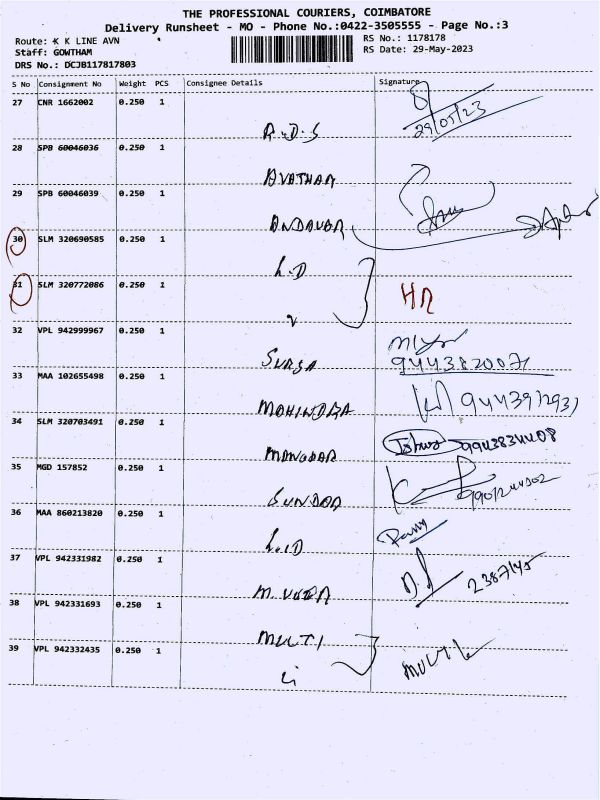 THE PROFESSIONAL COURIERS, COIMBATORE
Delivery Runsheet - MO - Phone No.:0422-3505555 - Page No.:3
Route: K K LINE AVN
RS No.: 1178178
Staff: GOWTHAM
RS Date: 29-May-2023
DRS No.: DCJB117817803
S No Consignment No Weight PCS Consignee Details Signature
27 CNR 1662002 0.250 1
29/05/23
R.D.S
28 SPB 60046036 0.250 1
AVATHAR
29 SPB 60046039 0.250 1
ANDAVAR
30 SLM 320690585 0.250 1
L.D
31 SLM 320772086 0.250 1
HR
32 VPL 942999967 0.250 1
SURSA
9443820071
33 MAA 102655498 0.250 1
MOHINDRA
34 SLM 320703491 0.250 1
9943834408
MANOHAR
35 MGD 157852 0.250 1
SUNDAR
36 MAA 860213820 0.250 1
L.I.D
37 VPL 942331982 0.250 1
2387145
38 VPL 942331693 0.250 1
MULTI
39 VPL 942332435 0.250 1
MULTI